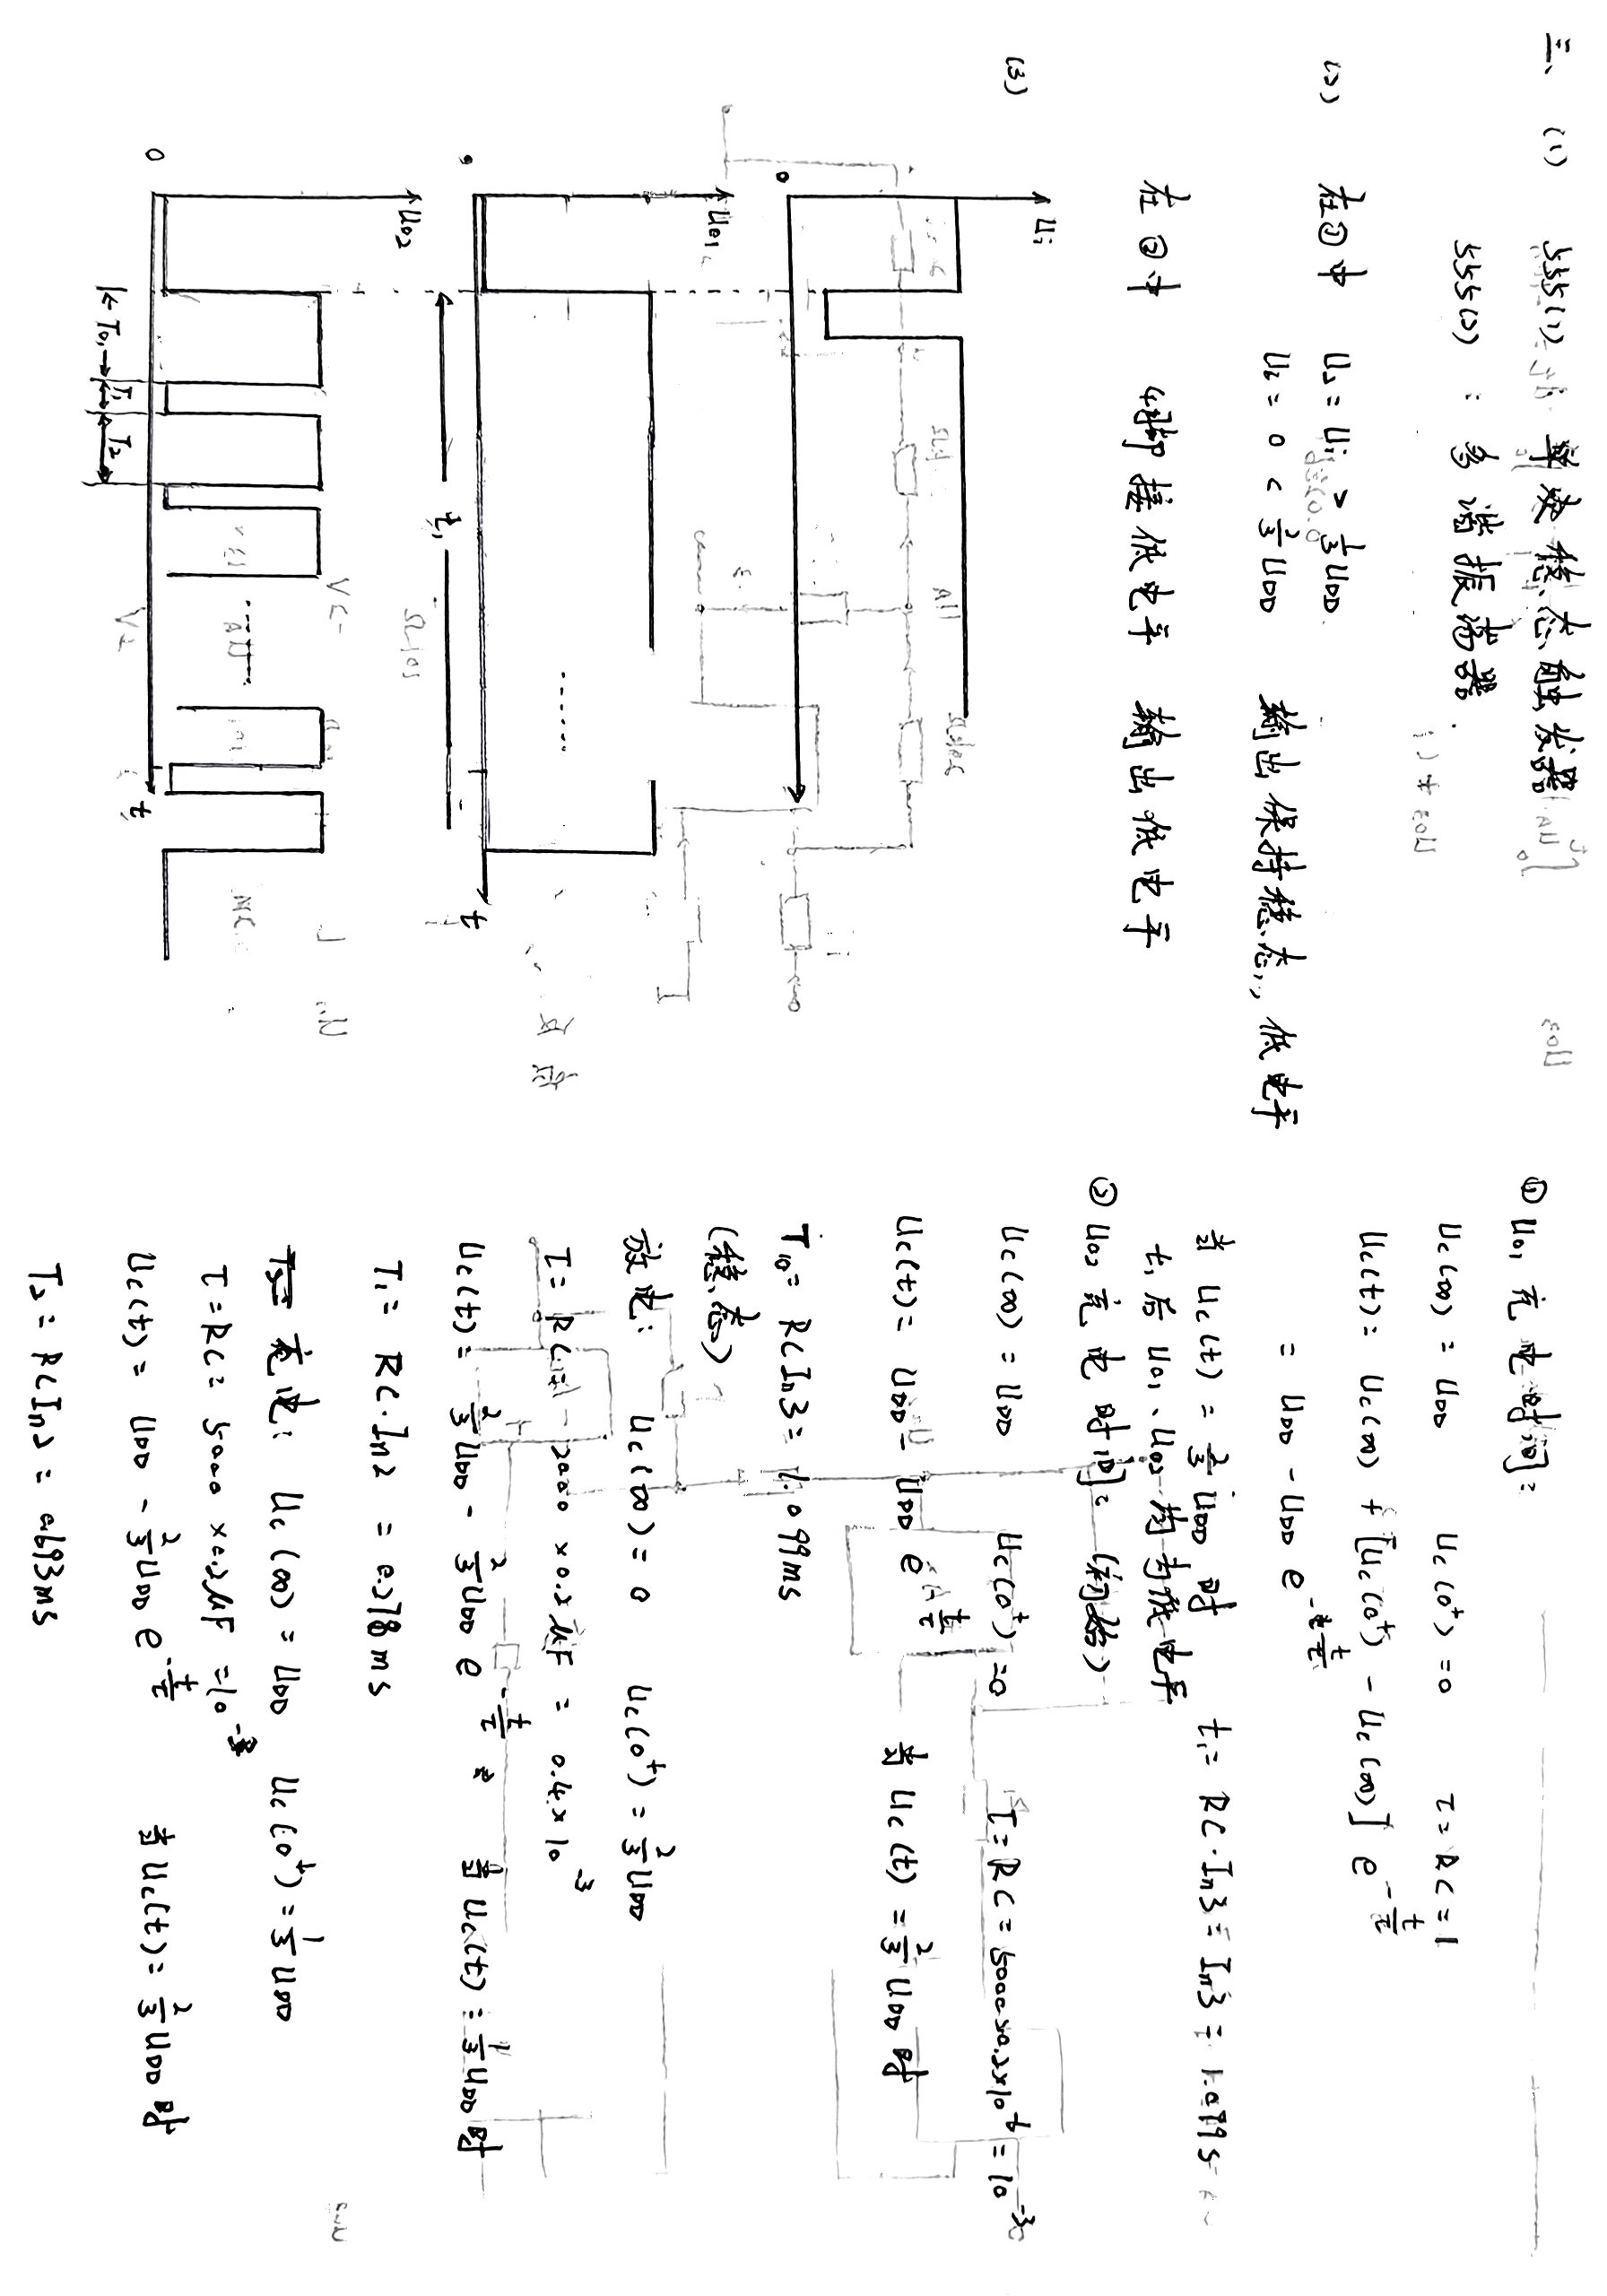 三、 (1) 555(1) : 单次稳态触发器
555(2) : 多谐振荡器.
(2) 在①中 U₂ = Ui > 1/3 UDD
U₆ = 0 < 2/3 UDD 输出保持稳态, 低电平
在②中 4脚接低电平 输出低电平
(3) Ui
0
Uo1
t
t₁
Uo2
0
t
T0 T₁ T₂
① Uo1 充电时间:
Uc(∞) = UDD Uc(0⁺) = 0 τ = RC = 1
Uc(t) = Uc(∞) + [Uc(0⁺) - Uc(∞)] e^(-t/τ)
= UDD - UDD e^(-t/τ)
当 Uc(t) = 2/3 UDD 时 t₁ = RC·In3 = In3 = 1.099s
t₁ 后 Uo1、Uo2 均为低电平
② Uo2 充电时间: (初始)
Uc(∞) = UDD Uc(0⁺) = 0 τ = RC = 5000×0.2×10⁻⁶ = 10⁻³
Uc(t) = UDD - UDD e^(-t/τ) 当 Uc(t) = 2/3 UDD 时
T₁₀ = RCIn3 = 1.099ms
(稳态)
放电: Uc(∞) = 0 Uc(0⁺) = 2/3 UDD
τ = RC = 2000 × 0.2μF = 0.4×10⁻³
Uc(t) = 2/3 UDD - 2/3 UDD e^(-t/τ) 当 Uc(t) = 1/3 UDD 时
T₁ = RC·In2 = 0.278ms
充电: Uc(∞) = UDD Uc(0⁺) = 1/3 UDD
τ = RC = 5000 × 0.2μF = 10⁻³
Uc(t) = UDD - 2/3 UDD e^(-t/τ) 当 Uc(t) = 2/3 UDD 时
T₂ = RCIn2 = 0.693ms